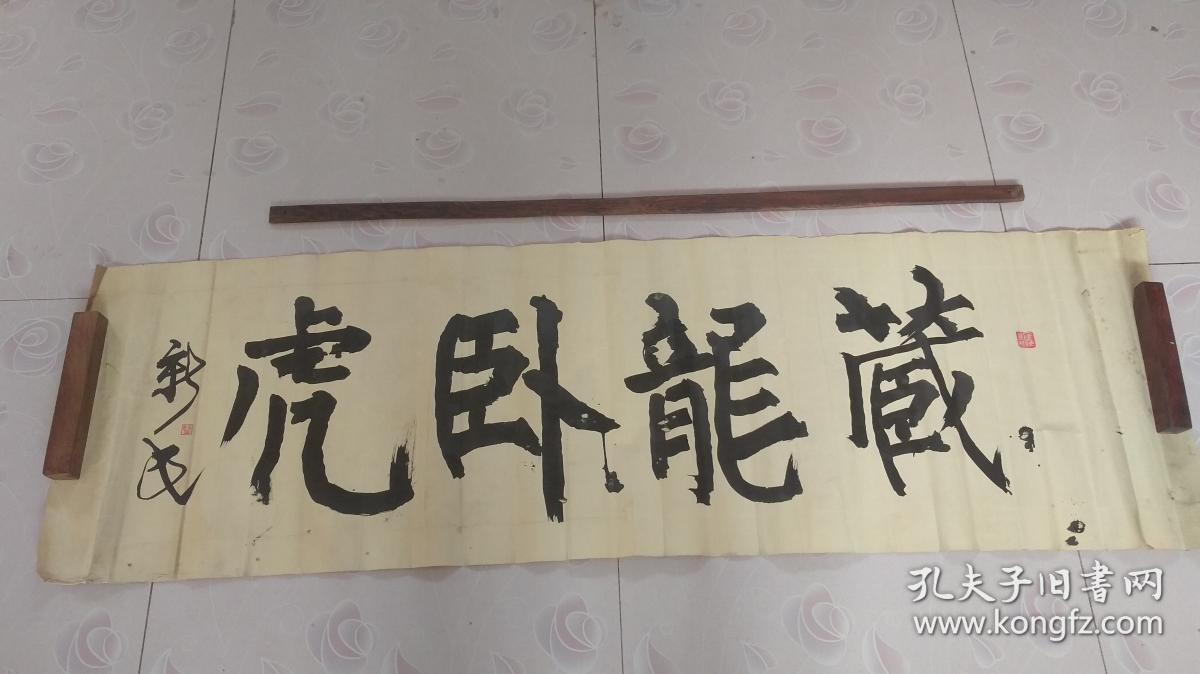 藏龍卧虎
新民
孔夫子旧書网
www.kongfz.com